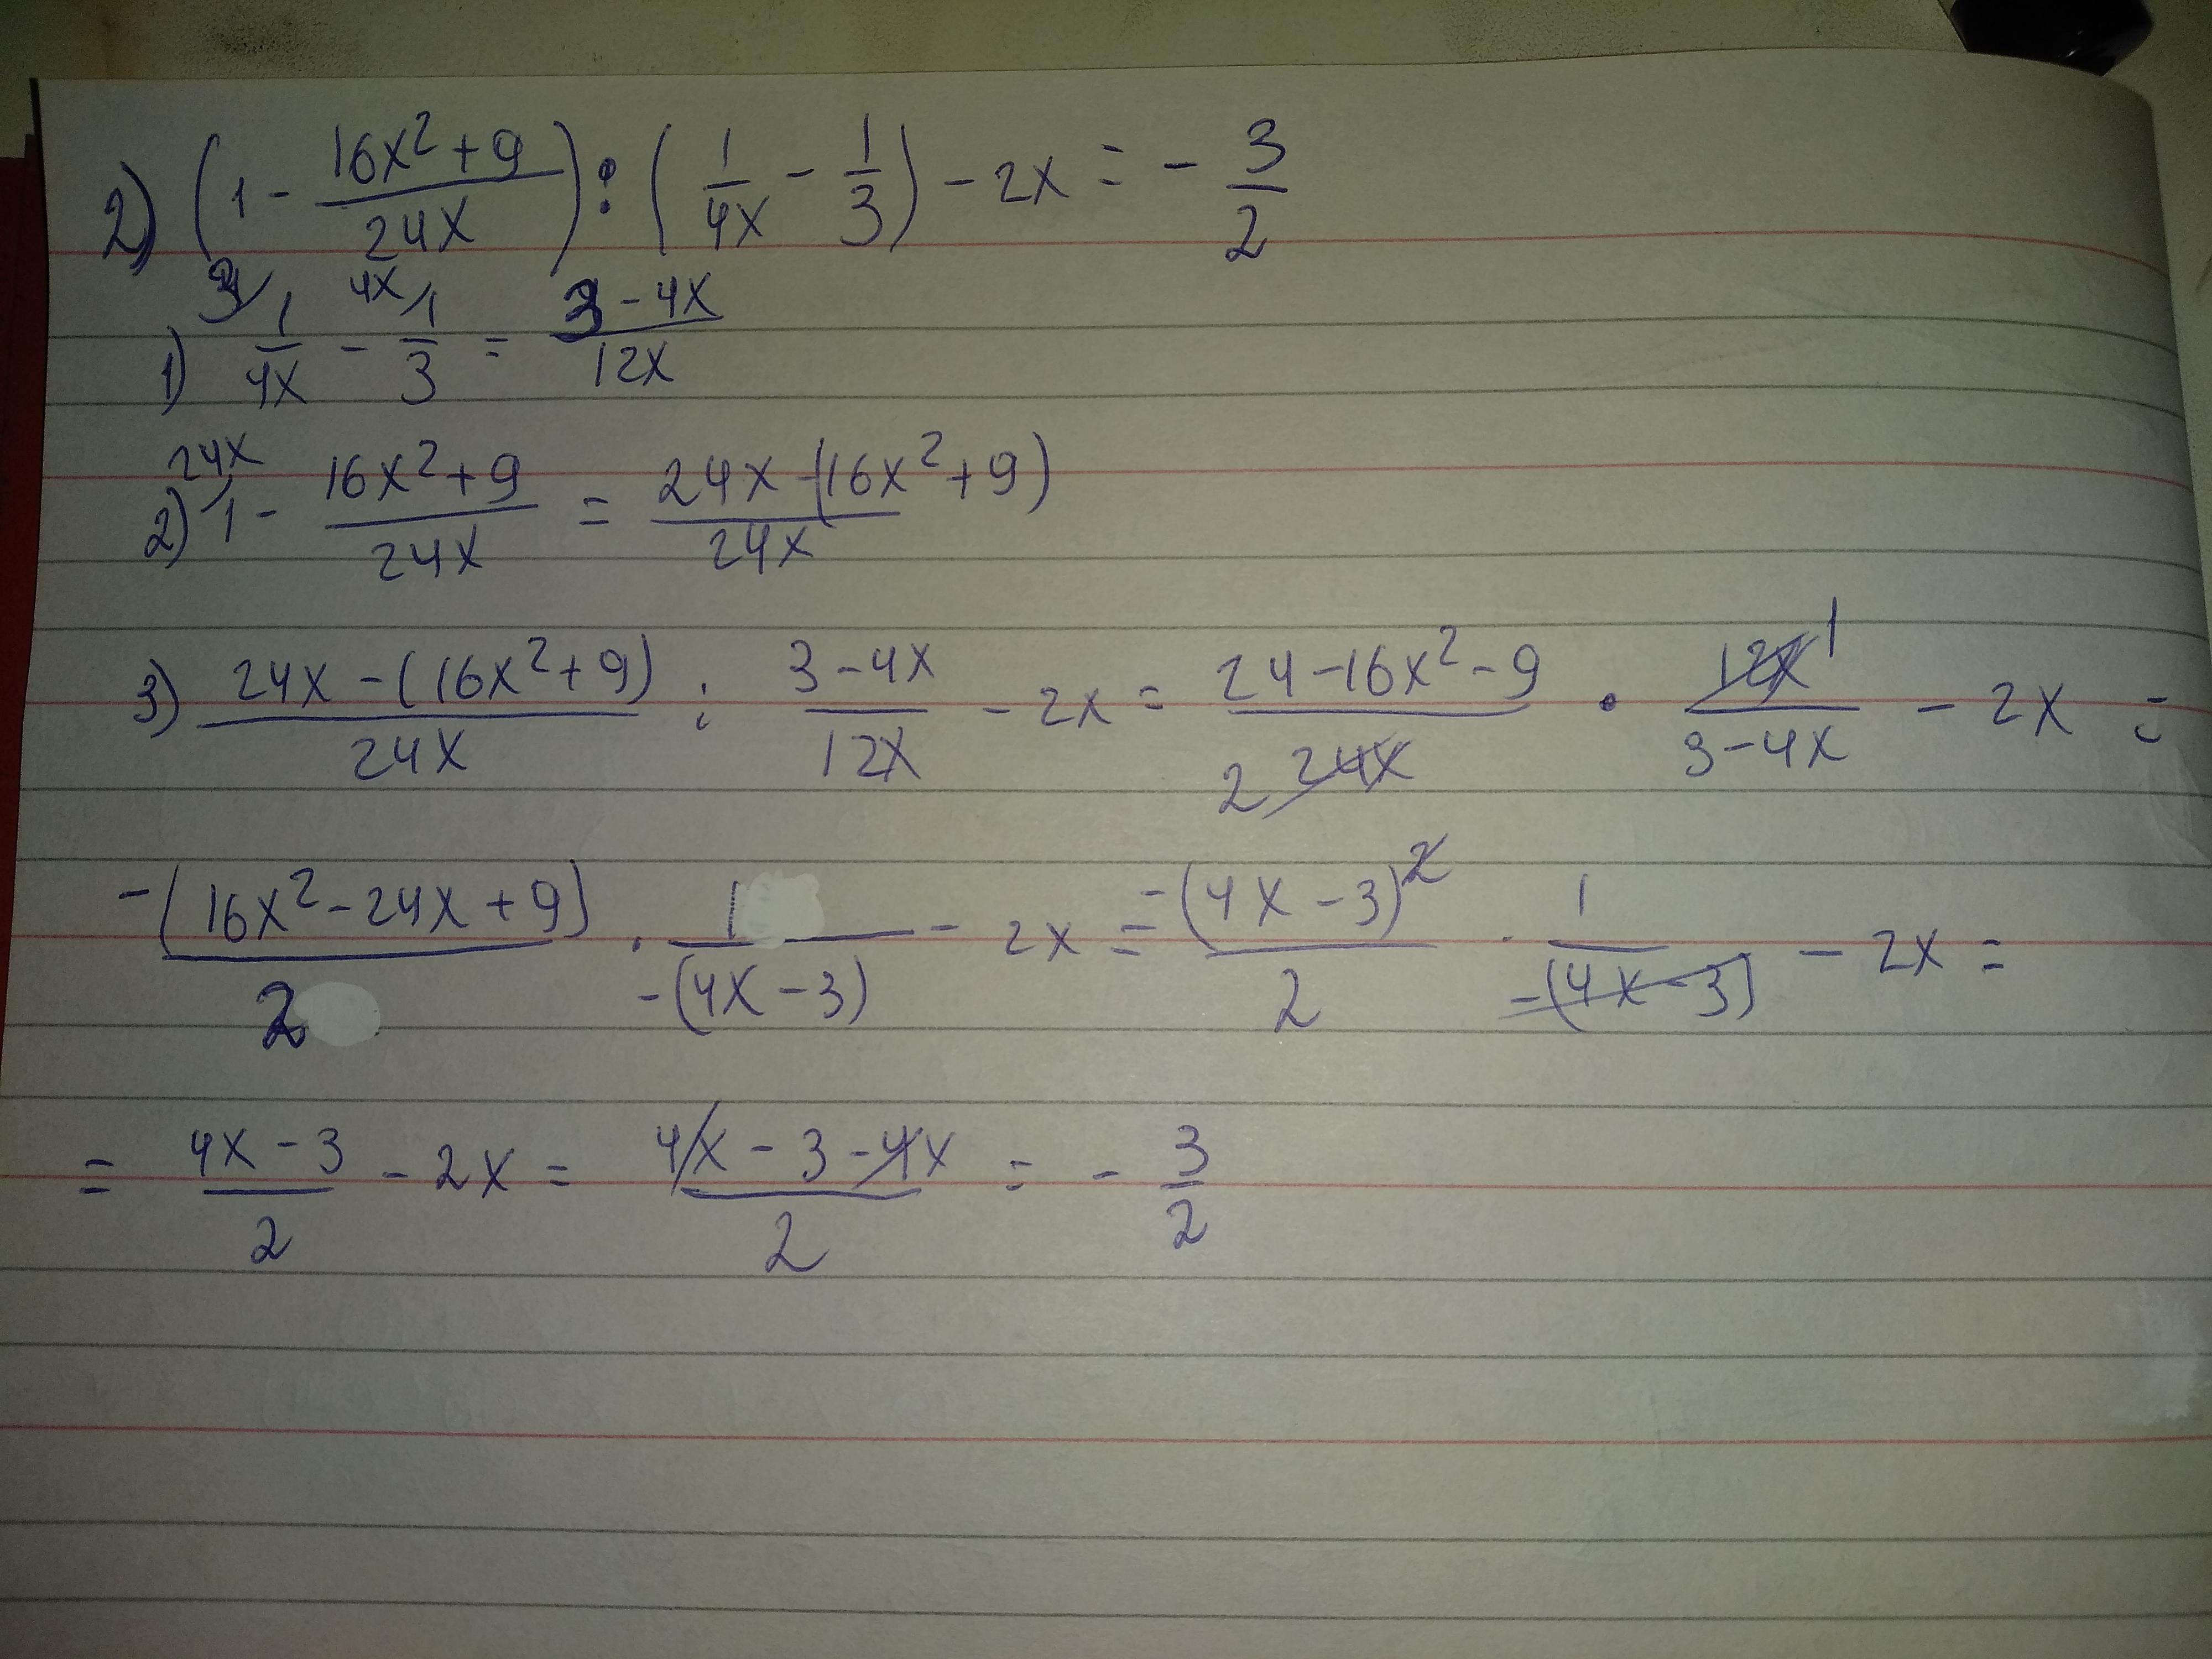 2) (1 - \frac{16x^2+9}{24x}) : (\frac{1}{4x} - \frac{1}{3}) - 2x = - \frac{3}{2}
1) ^{3/} \frac{1}{4x} - ^{4x/} \frac{1}{3} = \frac{3-4x}{12x}
2) ^{24x/} 1 - \frac{16x^2+9}{24x} = \frac{24x-(16x^2+9)}{24x}
3) \frac{24x-(16x^2+9)}{24x} : \frac{3-4x}{12x} - 2x = \frac{24-16x^2-9}{2 24x} · \frac{12x 1}{3-4x} - 2x =
\frac{-(16x^2-24x+9)}{2} · \frac{1}{-(4x-3)} - 2x = \frac{-(4x-3)^2}{2} · \frac{1}{-(4x-3)} - 2x =
= \frac{4x-3}{2} - 2x = \frac{4x-3-4x}{2} = - \frac{3}{2}